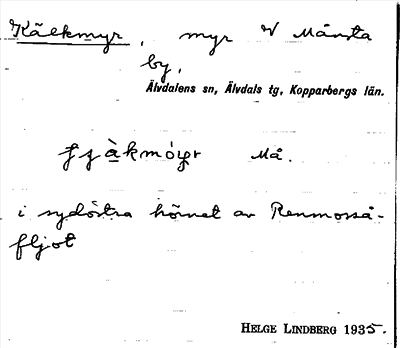 Kälkmyr, myr V Månsta
by,
Älvdalens sn, Älvdals tg, Kopparbergs län.
Må.
i sydöstra hörnet av Renmosså-
fljot
HELGE LINDBERG 1935.